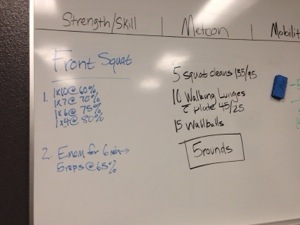 Strength/Skill
Metcon
Mobilit
Front Squat
1. 1x10@ 60%
1x7@ 70%
1x6@ 75%
1x4@ 80%
2. Emom for 6min→
5reps@65%
5 squat cleans 135/95
10 Walking Lunges
c plate 45/25
15 Wallballs
5rounds